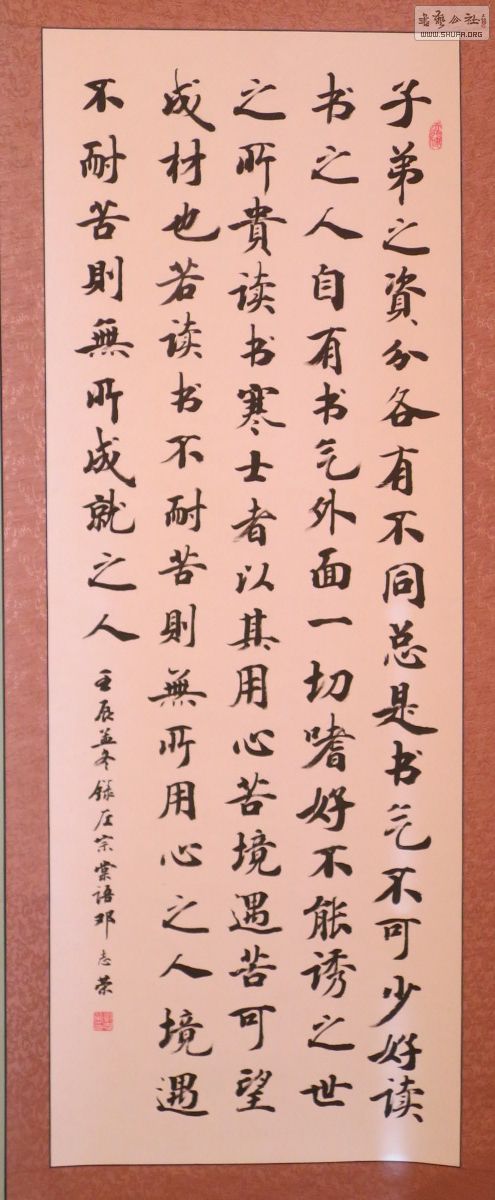 子弟之資分各有不同总是书气不可少好读
书之人自有书气外面一切嗜好不能诱之世
之所貴读书寒士者以其用心苦境遇苦可望
成材也若读书不耐苦則無所用心之人境遇
不耐苦則無所成就之人
壬辰孟冬錄左宗棠語邓志荣
书艺公社
WWW.SHUFA.ORG